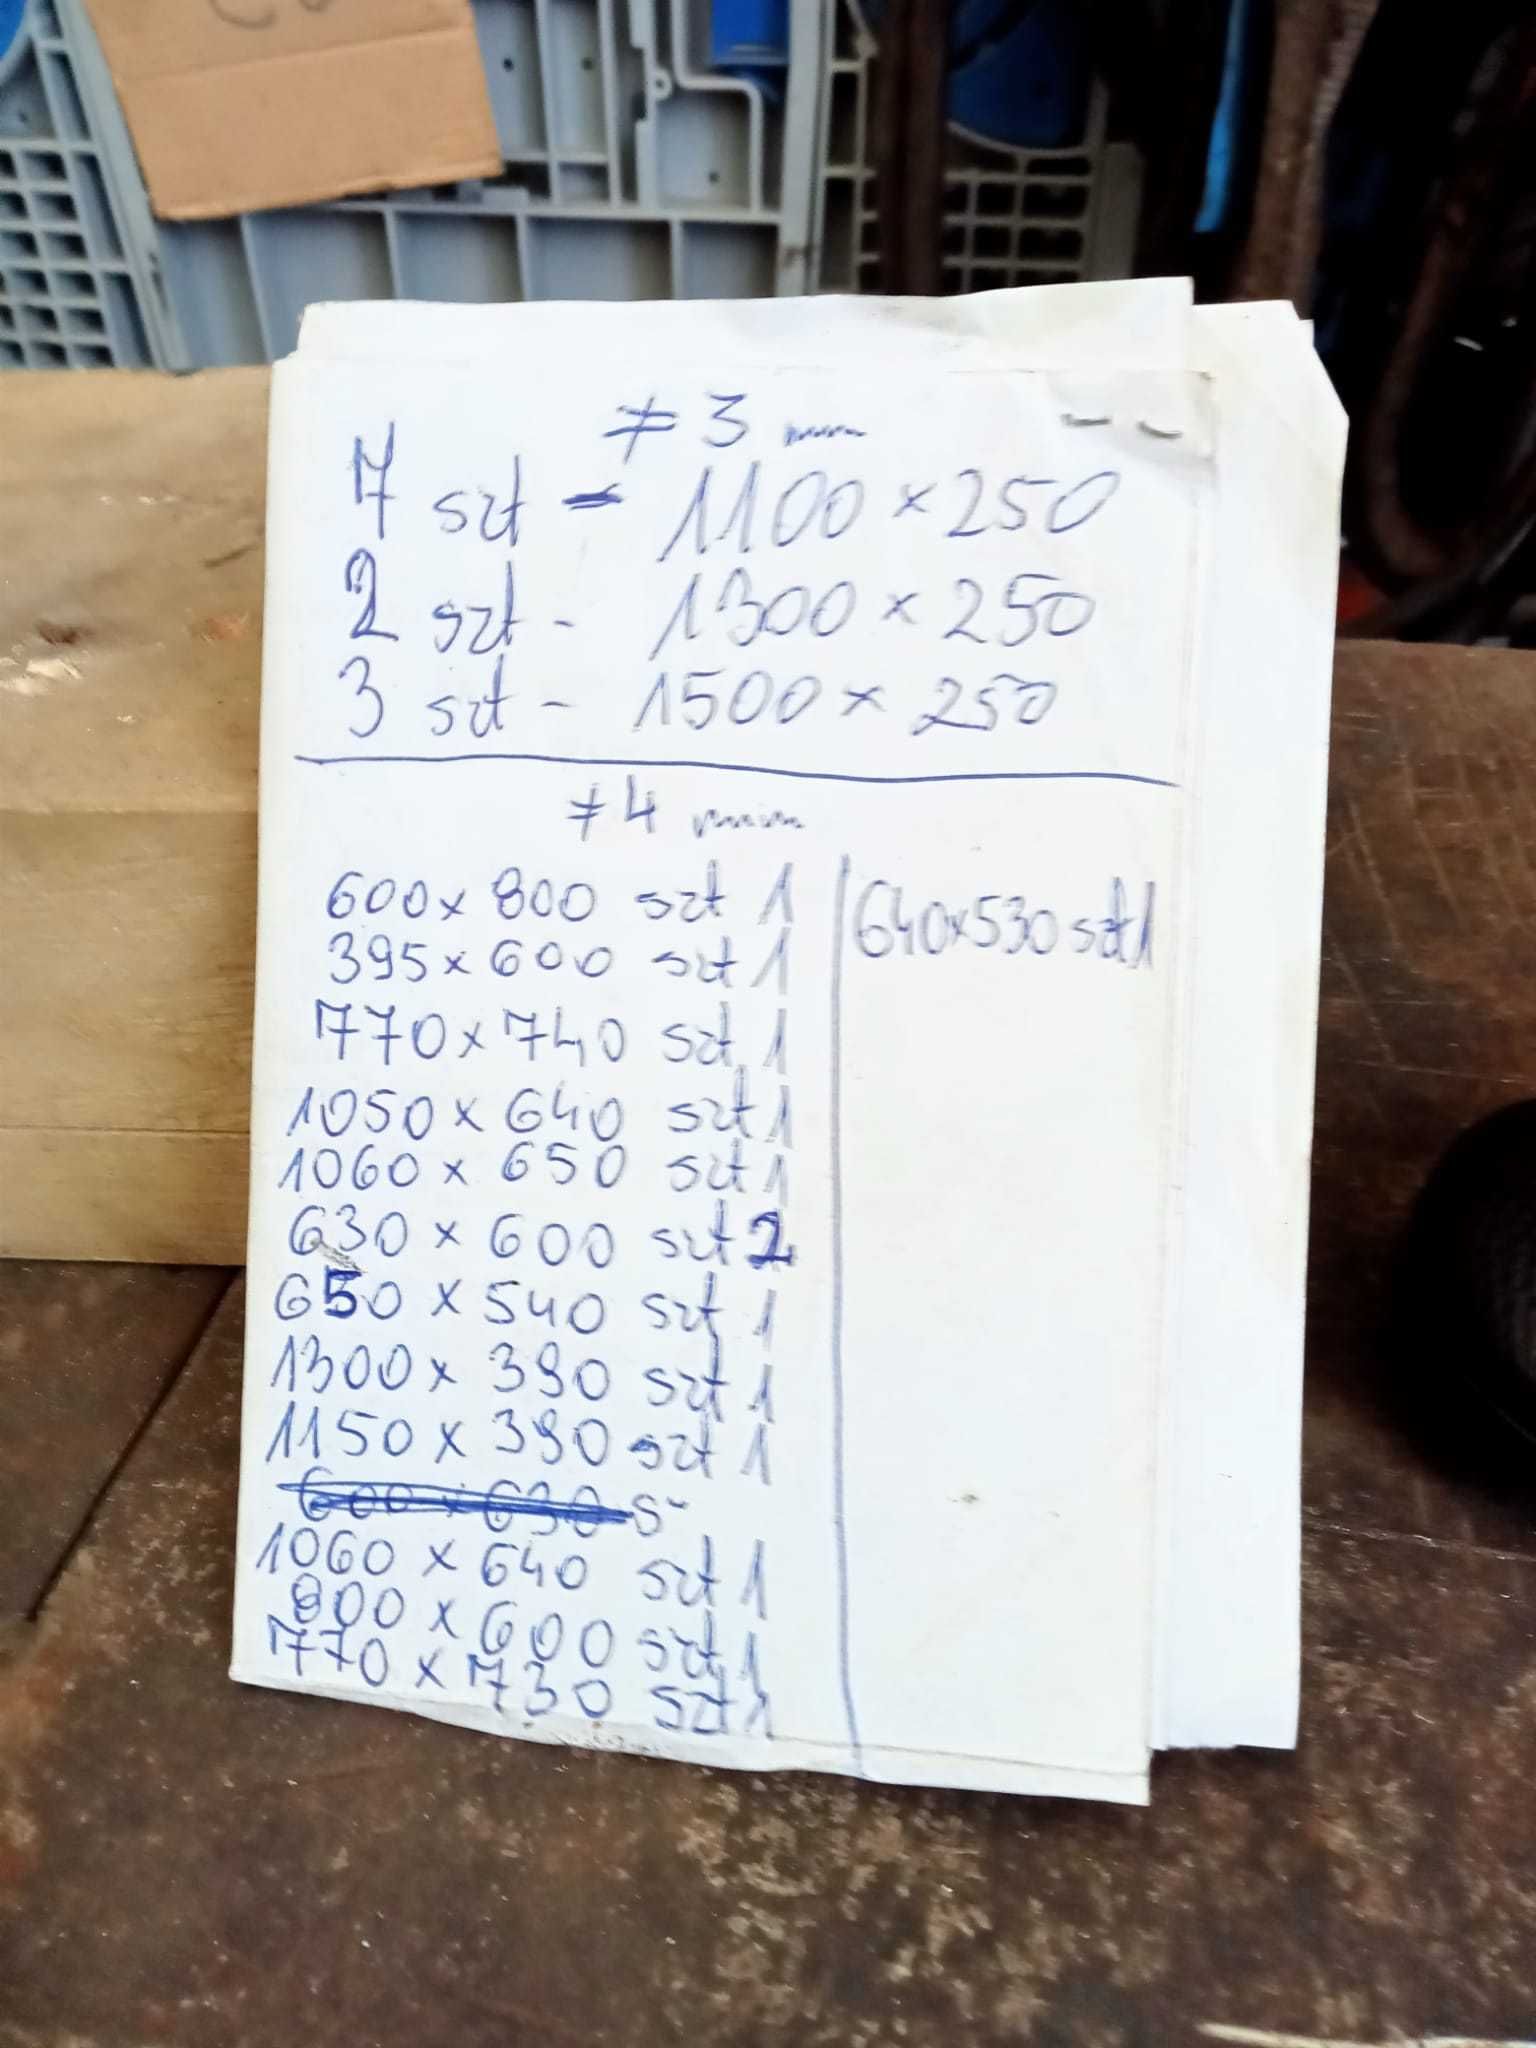 ≠ 3 mm
7 szt - 1100 x 250
2 szt - 1300 x 250
3 szt - 1500 x 250
≠ 4 mm
600 x 800 szt 1
395 x 600 szt 1
770 x 740 szt 1
1050 x 640 szt 1
1060 x 650 szt 1
630 x 600 szt 2
650 x 540 szt 1
1300 x 390 szt 1
1150 x 390 szt 1
600 x 630 s
1060 x 640 szt 1
800 x 600 szt 1
770 x 730 szt 1
640x530 szt 1